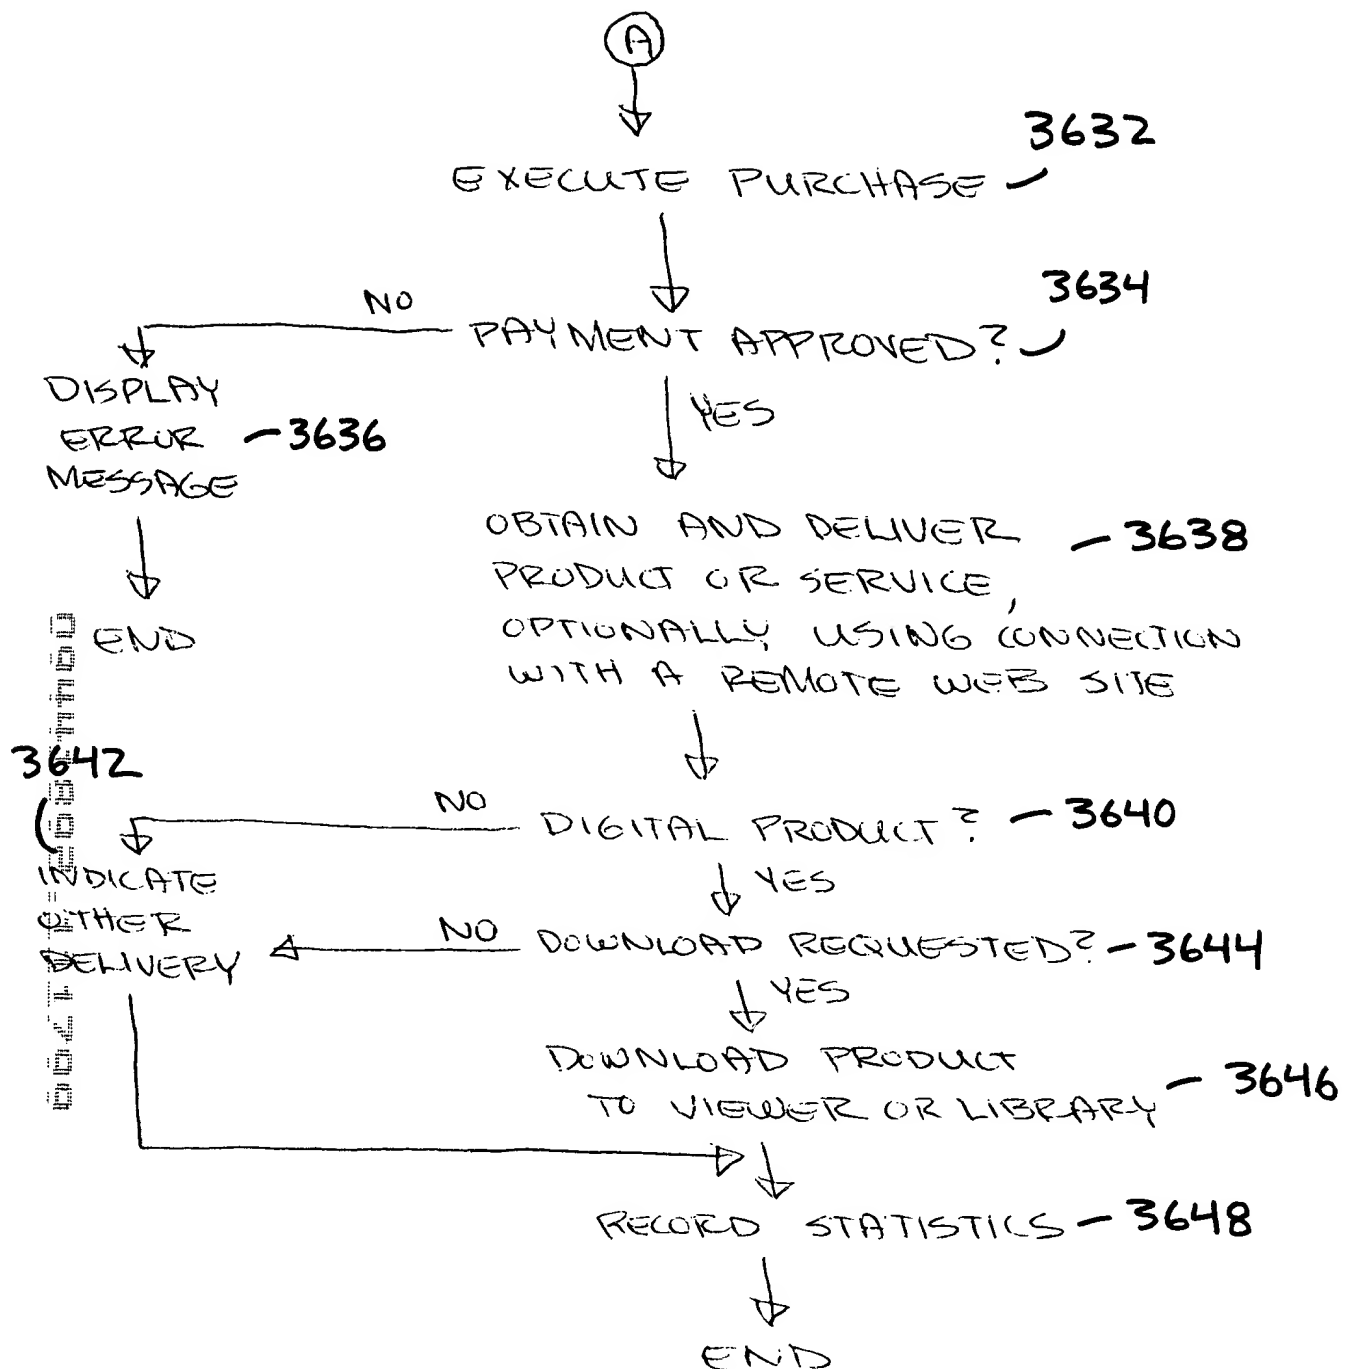 A
3632
EXECUTE PURCHASE
3634
NO
PAYMENT APPROVED?
YES
DISPLAY
ERROR
MESSAGE
3636
END
OBTAIN AND DELIVER
3638
PRODUCT OR SERVICE,
OPTIONALLY USING CONNECTION
WITH A REMOTE WEB SITE
3642
NO
DIGITAL PRODUCT?
3640
YES
INDICATE
OTHER
DELIVERY
NO
DOWNLOAD REQUESTED?
3644
YES
DOWNLOAD PRODUCT
TO VIEWER OR LIBRARY
3646
RECORD STATISTICS
3648
END